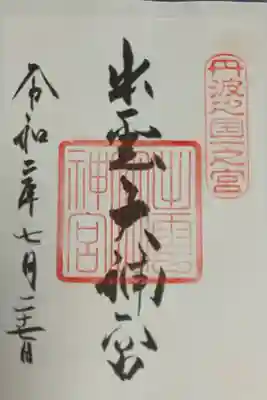 丹波之国一之宮
出雲大神宮
出雲大神宮
令和二年七月二十七日